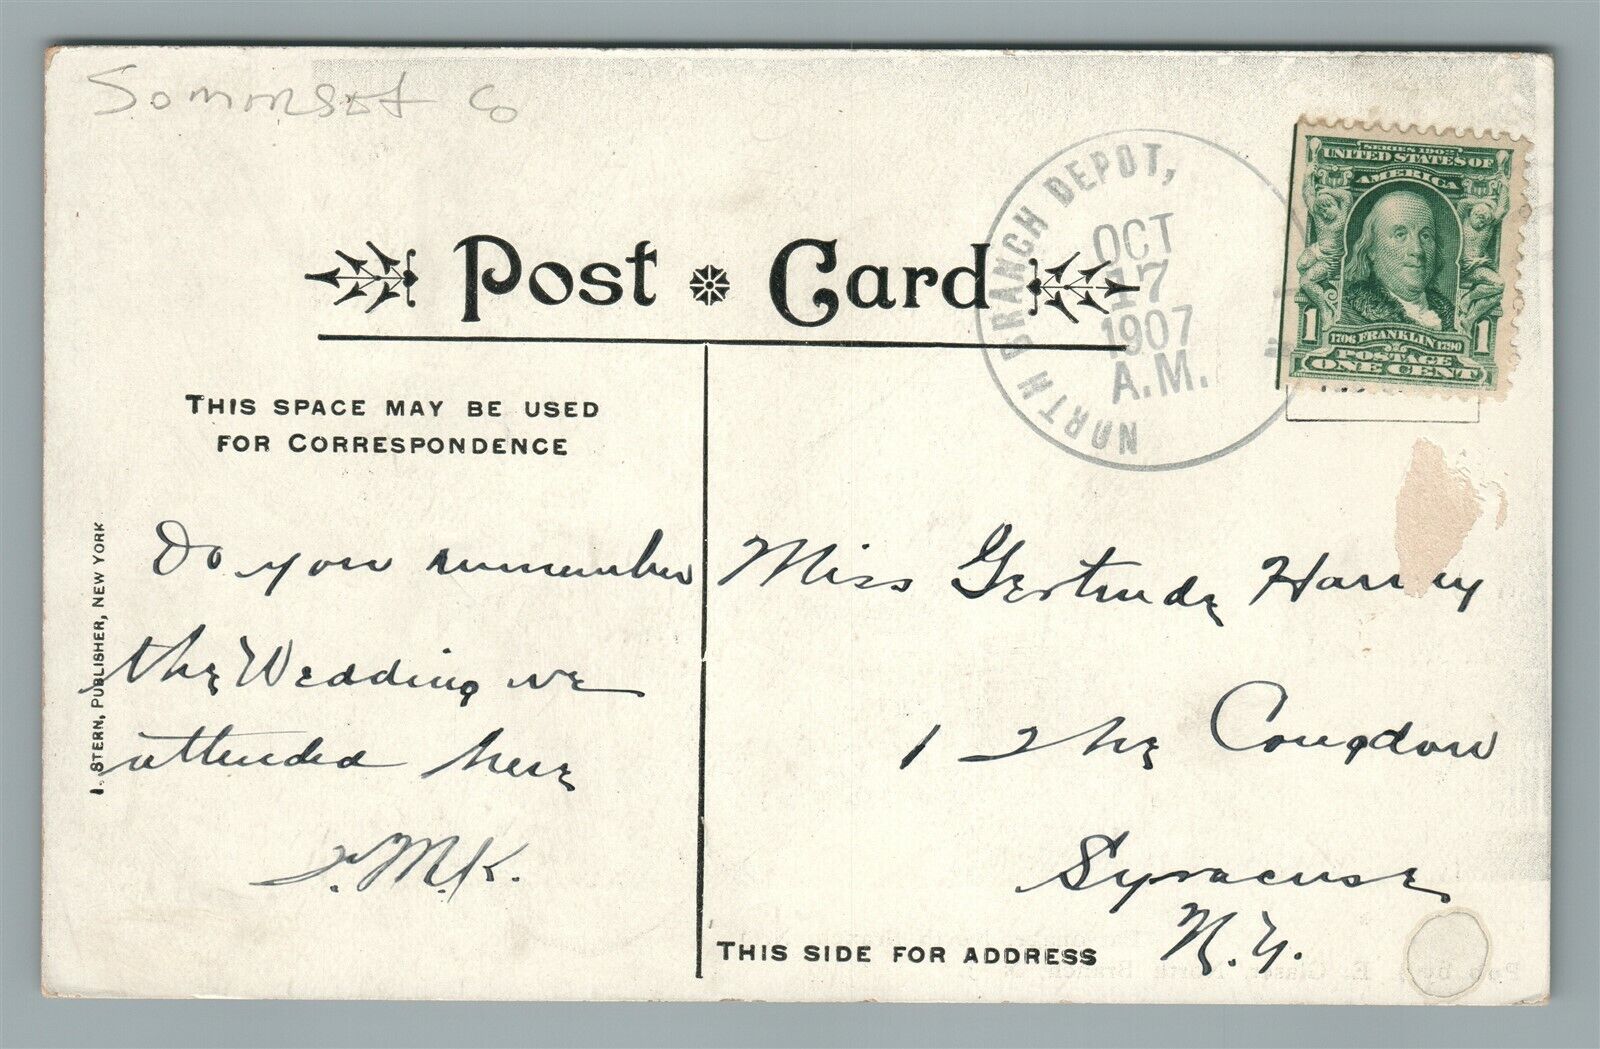 Somerset Co
NORTH BRANCH DEPOT,
OCT
17
1907
A.M.
SERIES 1902
UNITED STATES OF
AMERICA
1706 FRANKLIN 1790
1 1
POSTAGE
ONE CENT
Post Card
THIS SPACE MAY BE USED
FOR CORRESPONDENCE
I. STERN, PUBLISHER, NEW YORK
Do you remember
the Wedding we
attended here
F.M.K.
Miss Gertrude
1 The Congdon
Syracuse
N.Y.
THIS SIDE FOR ADDRESS